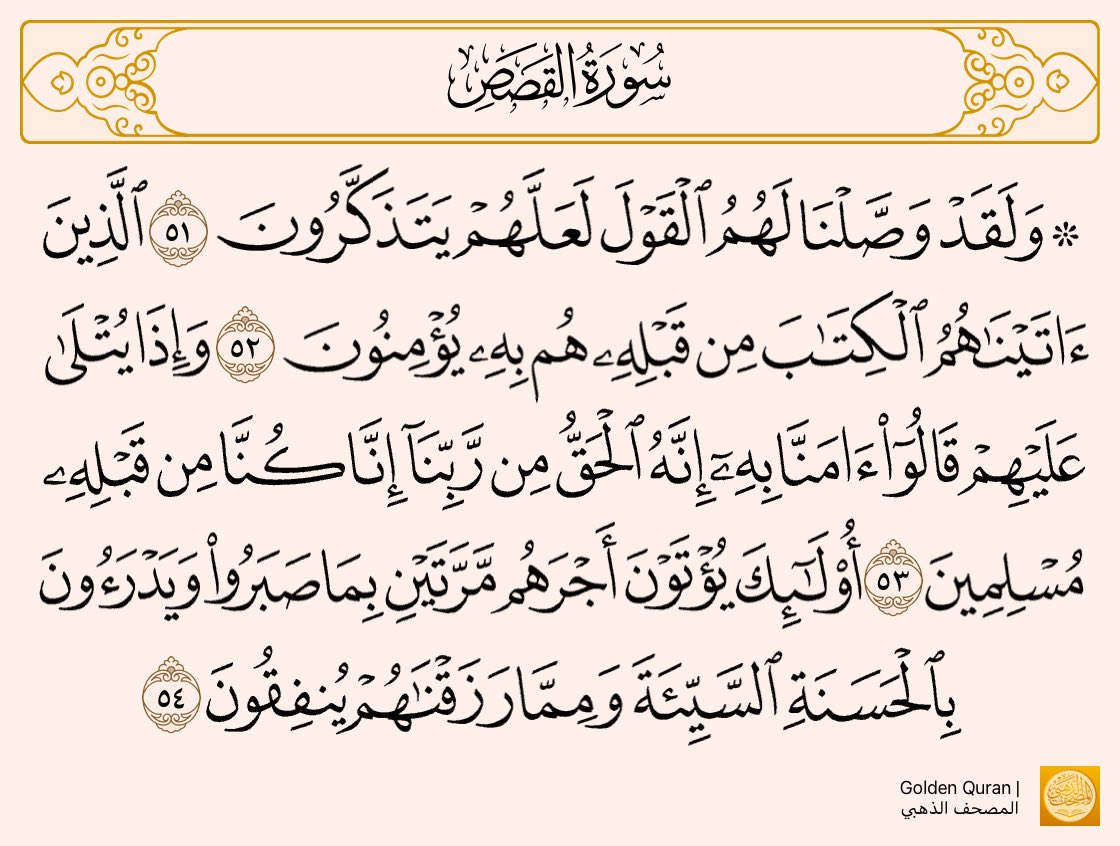 سُورَةُ القَصَصِ
۞ وَلَقَدْ وَصَّلْنَا لَهُمُ ٱلْقَوْلَ لَعَلَّهُمْ يَتَذَكَّرُونَ ٥١ ٱلَّذِينَ
ءَاتَيْنَٰهُمُ ٱلْكِتَٰبَ مِن قَبْلِهِۦ هُم بِهِۦ يُؤْمِنُونَ ٥٢ وَإِذَا يُتْلَىٰ
عَلَيْهِمْ قَالُوٓا۟ ءَامَنَّا بِهِۦٓ إِنَّهُ ٱلْحَقُّ مِن رَّبِّنَآ إِنَّا كُنَّا مِن قَبْلِهِۦ
مُسْلِمِينَ ٥٣ أُو۟لَٰٓئِكَ يُؤْتَوْنَ أَجْرَهُم مَّرَّتَيْنِ بِمَا صَبَرُوا۟ وَيَدْرَءُونَ
بِٱلْحَسَنَةِ ٱلسَّيِّئَةَ وَمِمَّا رَزَقْنَٰهُمْ يُنفِقُونَ ٥٤
Golden Quran |
المصحف الذهبي
المصحف الذهبي